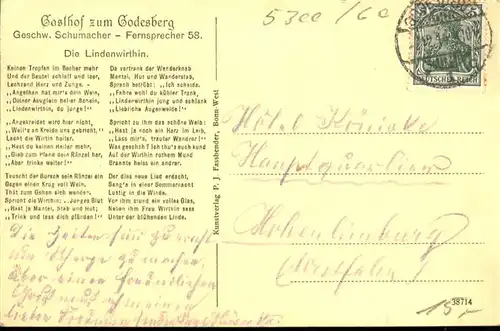 Gasthof zum Godesberg
Geschw. Schumacher – Fernsprecher 58.
Die Lindenwirthin.
Keinen Tropfen im Becher mehr
Und der Beutel schlaff und leer,
Lechzend Herz und Zunge. –
„Angethan hat mir's dein Wein,
„Deiner Äuglein heller Schein,
„Lindenwirthin, du junge!“
„Angekreidet wird hier nicht,
„Weil's an Kreide uns gebricht,“
Lacht die Wirthin heiter.
„Hast du keinen Heller mehr,
„Gieb zum Pfand dein Ränzel her,
„Aber trinke weiter!“
Tauscht der Bursch sein Ränzel ein
Gegen einen Krug voll Wein.
Thät zum Gehen sich wenden.
Spricht die Wirthin: „Junges Blut
„Hast ja Mantel, Stab und Hut;
„Trink und lass dich pfänden!“
Da vertrank der Wanderknab
Mantel, Hut und Wanderstab,
Sprach betrübt: „Ich scheide.
„Fahre wohl du kühler Trank,
„Lindenwirthin jung und schlank
„Liebliche Augenweide!“
Spricht zu ihm das schöne Weib:
„Hast ja noch ein Herz im Leib,
„Lass mir's, trauter Wandrer!“
Was geschah? Ich thu's euch kund
Auf der Wirthin rothem Mund
Brannte heiss ein andrer.
Der dies neue Lied erdacht,
Sang's in einer Sommernacht
Lustig in die Winde.
Vor ihm stund ein volles Glas,
Neben ihm Frau Wirthin sass
Unter der blühenden Linde.
Kunstverlag P. J. Fassbender, Bonn-West
5300 /60
DEUTSCHES REICH
Hôtel
Hohenlimburg
Westfalen
38714
15,-
Die Zeiten sind zu ernst
um Scherze zu machen,
aber einen freundlichen
Gruß